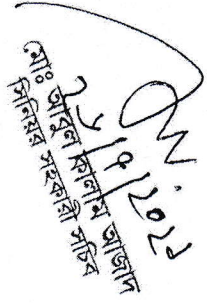 ২১/৭/২০২১
মোঃ আবুল কালাম আজাদ
সিনিয়র সহকারী সচিব